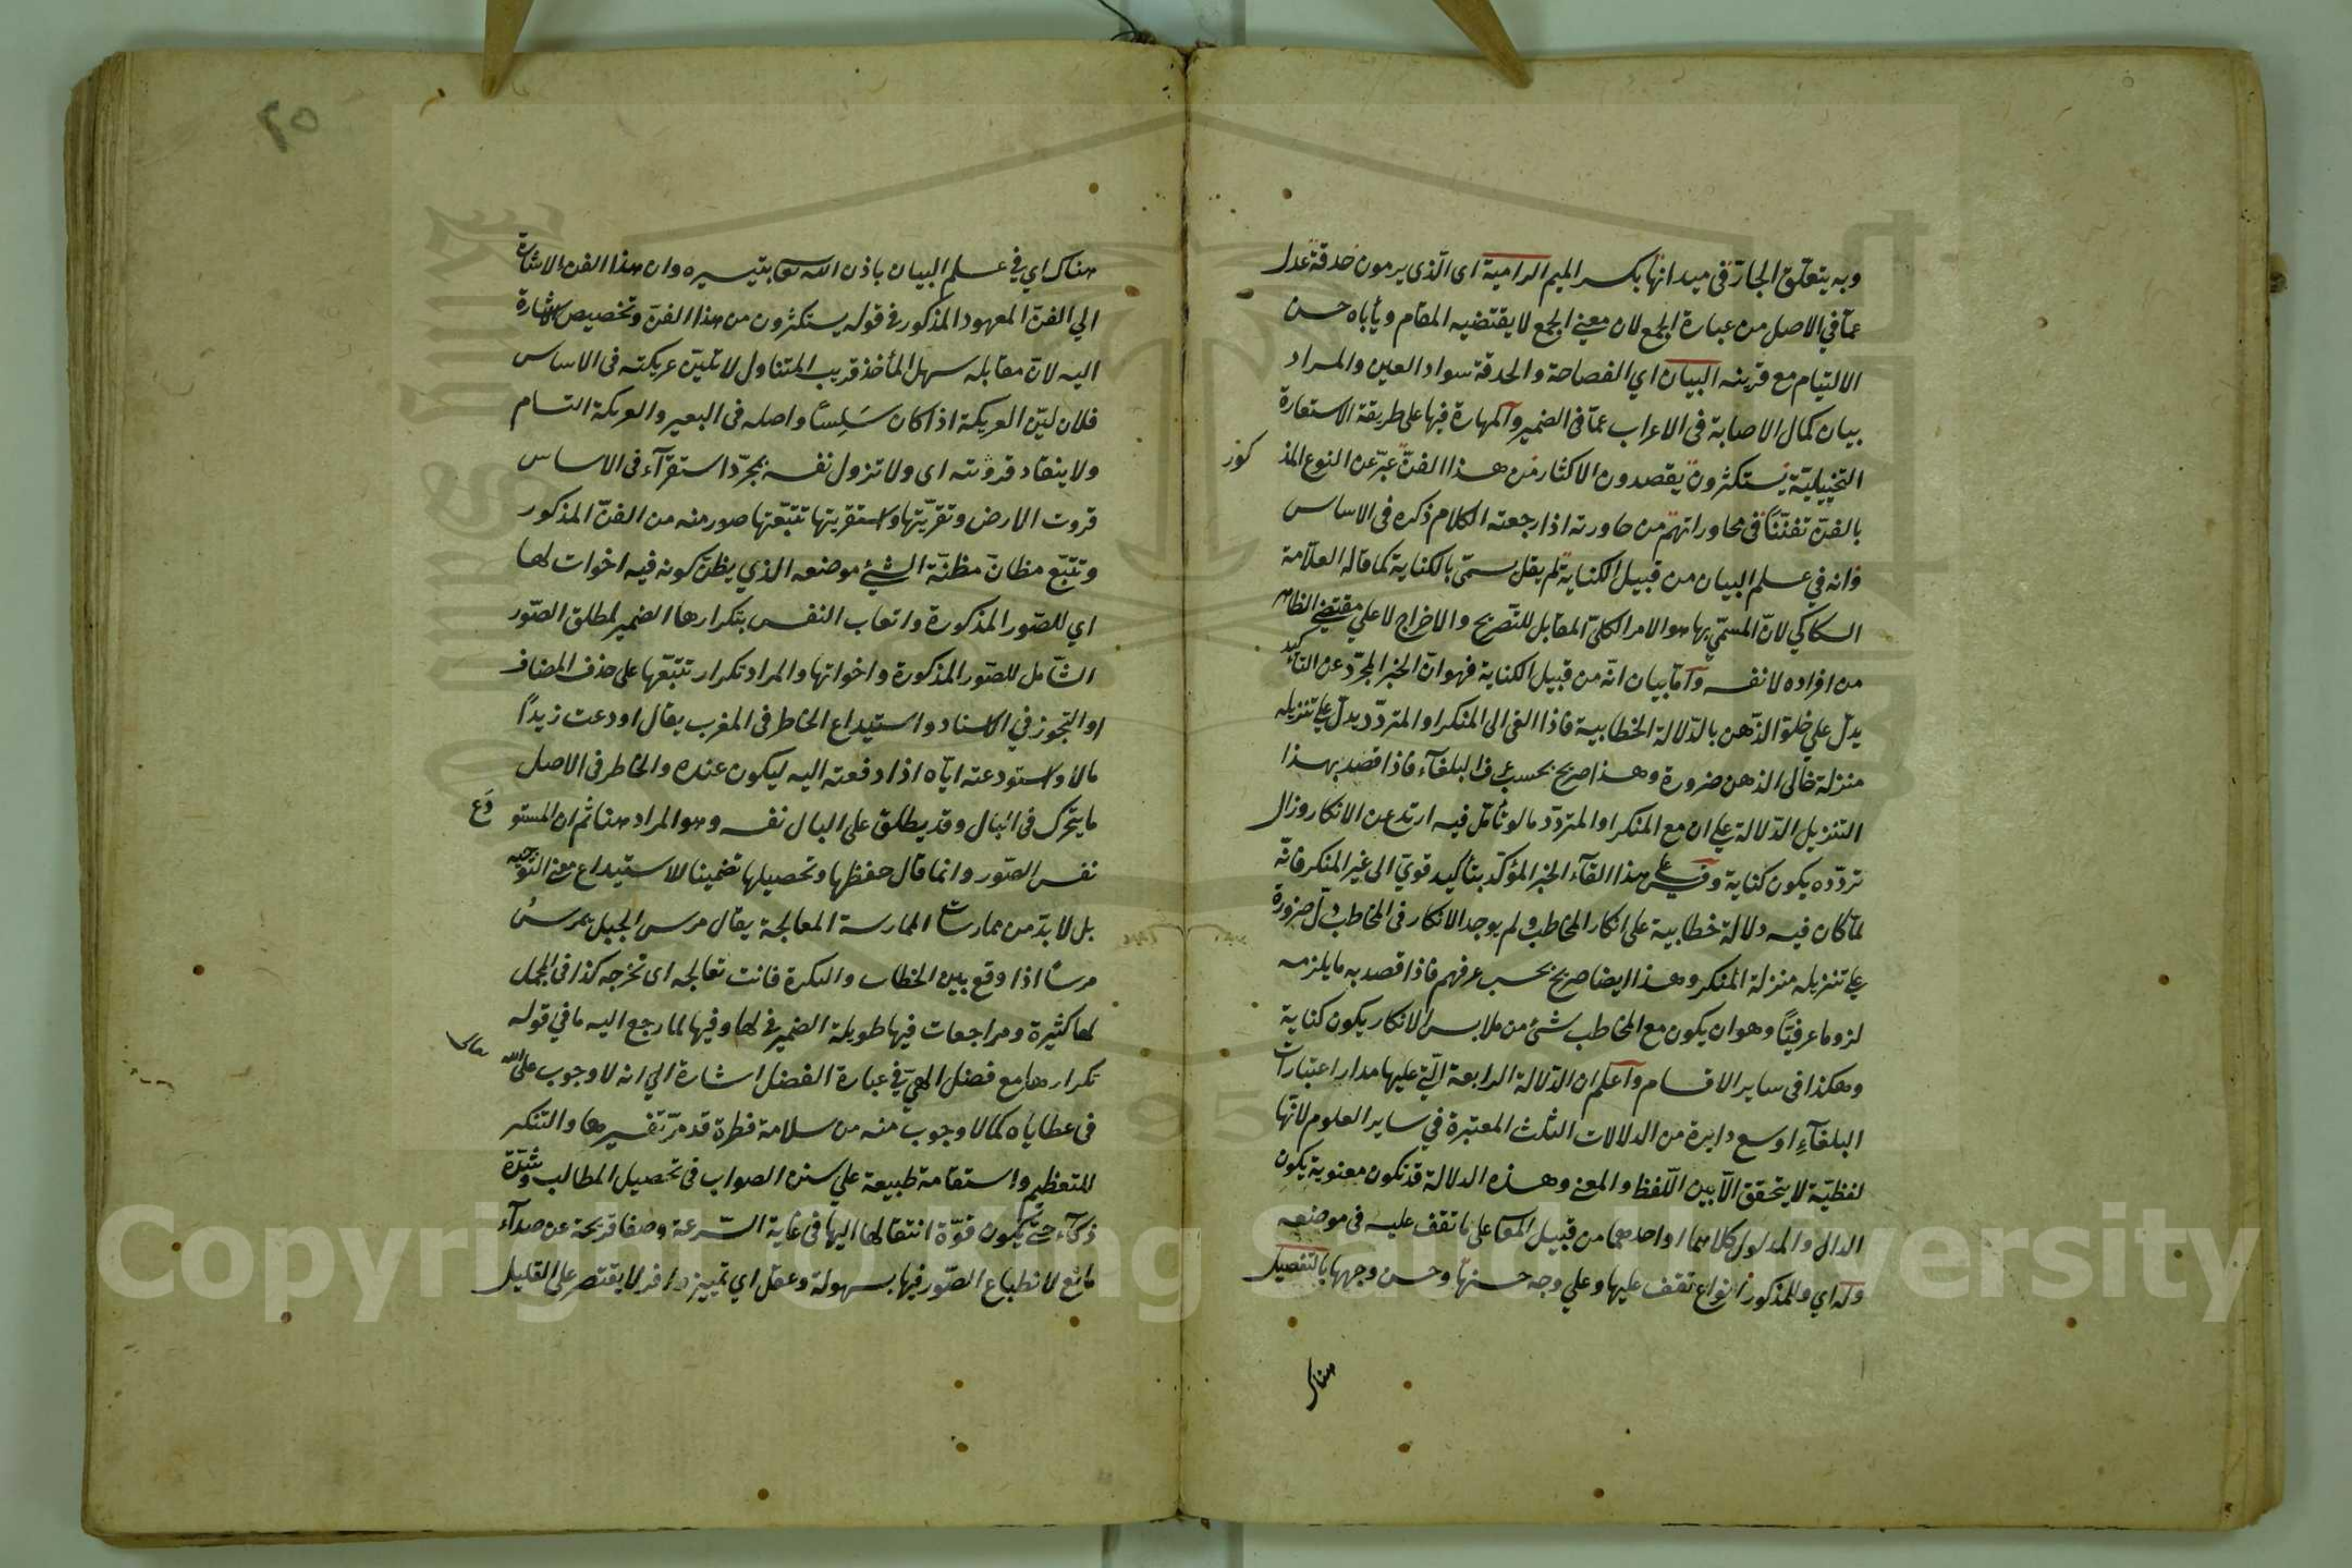 وبه يتعلق الجار في ميدانها بكسر الميم الرامية اى الذى يرمون حدقة عدل
عما في الاصل من عبارة الجمع لان معنى الجمع لا يقتضيه المقام ويأباه حسن
الالتيام مع قرينه البيان اي الفصاحة والحدقة سواد العين والمراد
بيان كمال الاصابة في الاعراب عما في الضمير والمهارة فيها على طريقة الاستعارة
التخييلية يستكثرون يقصدون الاكثار من هذا الفن عبر عن النوع المذكور
بالفن تفننا في محاوراتهم من حاورته اذا راجعته الكلام ذكره في الاساس
وانه في علم البيان من قبيل الكناية لم يقل يسمى بالكناية كما قاله العلامة
السكاكي لان المسمى بها هو الامر الكلي المقابل للتصريح والاخراج لا على مقتضى الظاهر
من افراده لا نفسه واما بيان انه من قبيل الكناية فهو ان الخبر المجرد عن التأكيد
يدل على خلو الذهن بالدلالة الخطابية فاذا القى الى المنكر او المتردد يدل على تنزيله
منزلة خالى الذهن ضرورة وهذا صريح بحسب عرف البلغآء فاذا قصد بهذا
التنزيل الدلالة على ان مع المنكر او المتردد ما لو تأمل فيه ارتدع عن الانكار وزال
تردده يكون كناية وقس على هذا القآء الخبر المؤكد بتأكيد قوي الى غير المنكر فانه
لما كان فيه دلالة خطابية على انكار المخاطب ولم يوجد الانكار في المخاطب دل ضرورة
على تنزيله منزلة المنكر وهذا ايضا صريح بحسب عرفهم فاذا قصد به ما يلزمه
لزوما عرفيا وهو ان يكون مع المخاطب شئ من ملابس الانكار يكون كناية
وهكذا في ساير الاقسام واعلم ان الدلالة الرابعة التي عليها مدار اعتبارات
البلغآء اوسع دايرة من الدلالات الثلث المعتبرة في ساير العلوم لانها
لفظية لا يتحقق الا بين اللفظ والمعنى وهذه الدلالة قد تكون معنوية يكون
الدال والمدلول كلاهما او احدهما من قبيل المعا على ما تقف عليه في موضعه
وله اي وللمذكور انواع تقف عليها وعلى وجه حسنها وحسن وجهها بالتفصيل
هناك
٢٥
هناك اي في علم البيان باذن الله تعا بتيسيره وان هذا الفن الاشارة
الى الفن المعهود المذكور في قوله يستكثرون من هذا الفن وتخصيص الاشارة
اليه لان مقابله سهل المأخذ قريب المتناول لا تلين عريكته في الاساس
فلان لين العريكة اذا كان سلسا واصله في البعير والعريكة السنام
ولا ينقاد قرونته اى ولا تزول نفسه بمجرد استقرآء في الاساس
قروت الارض وتقريتها واستقريتها تتبعتها صور منه من الفن المذكور
وتتبع مظان مظنة الشئ موضعه الذي يظن كونه فيه اخوات لها
اي للصور المذكورة واتعاب النفس بتكرارها الضمير لمطلق الصور
الشامل للصور المذكورة واخواتها والمراد تكرار تتبعها على حذف المضاف
او التجوز في الاسناد واستيداع الخاطر في المغرب يقال اودعت زيدا
مالا واستودعته اياه اذا دفعته اليه ليكون عنده والخاطر في الاصل
ما يتحرك في البال وقد يطلق على البال نفسه وهو المراد هنا ثم ان المستودع
نفس الصور وانما قال حفظها وتحصيلها تضمينا للاستيداع معنى التوجيه
بل لا بد من ممارسات الممارسة المعالجة يقال مرس الحبل يمرس
مرسا اذا وقع بين الخطاف والبكرة فانت تعالجه اى تخرجه كذا في المجمل
لها كثيرة ومراجعات فيها طويلة الضمير في لها وفيها لما رجع اليه ما في قوله
تكرارها مع فضل الهي في عبارة الفضل اشارة الى انه لا وجوب على الله تعالى
في عطاياه كما لا وجوب منه من سلامة فطرة قد مر تفسيرها والتنكير
للتعظيم واستقامة طبيعة على سنن الصواب في تحصيل المطالب وشدة
ذكآء حتى تكون قوة انتقالها اليها في غاية السرعة وصفا قريحة عن صدآء
مانع لانطباع الصور فيها بسهولة وعقل اي تمييز وافر لا يقتصر على القليل